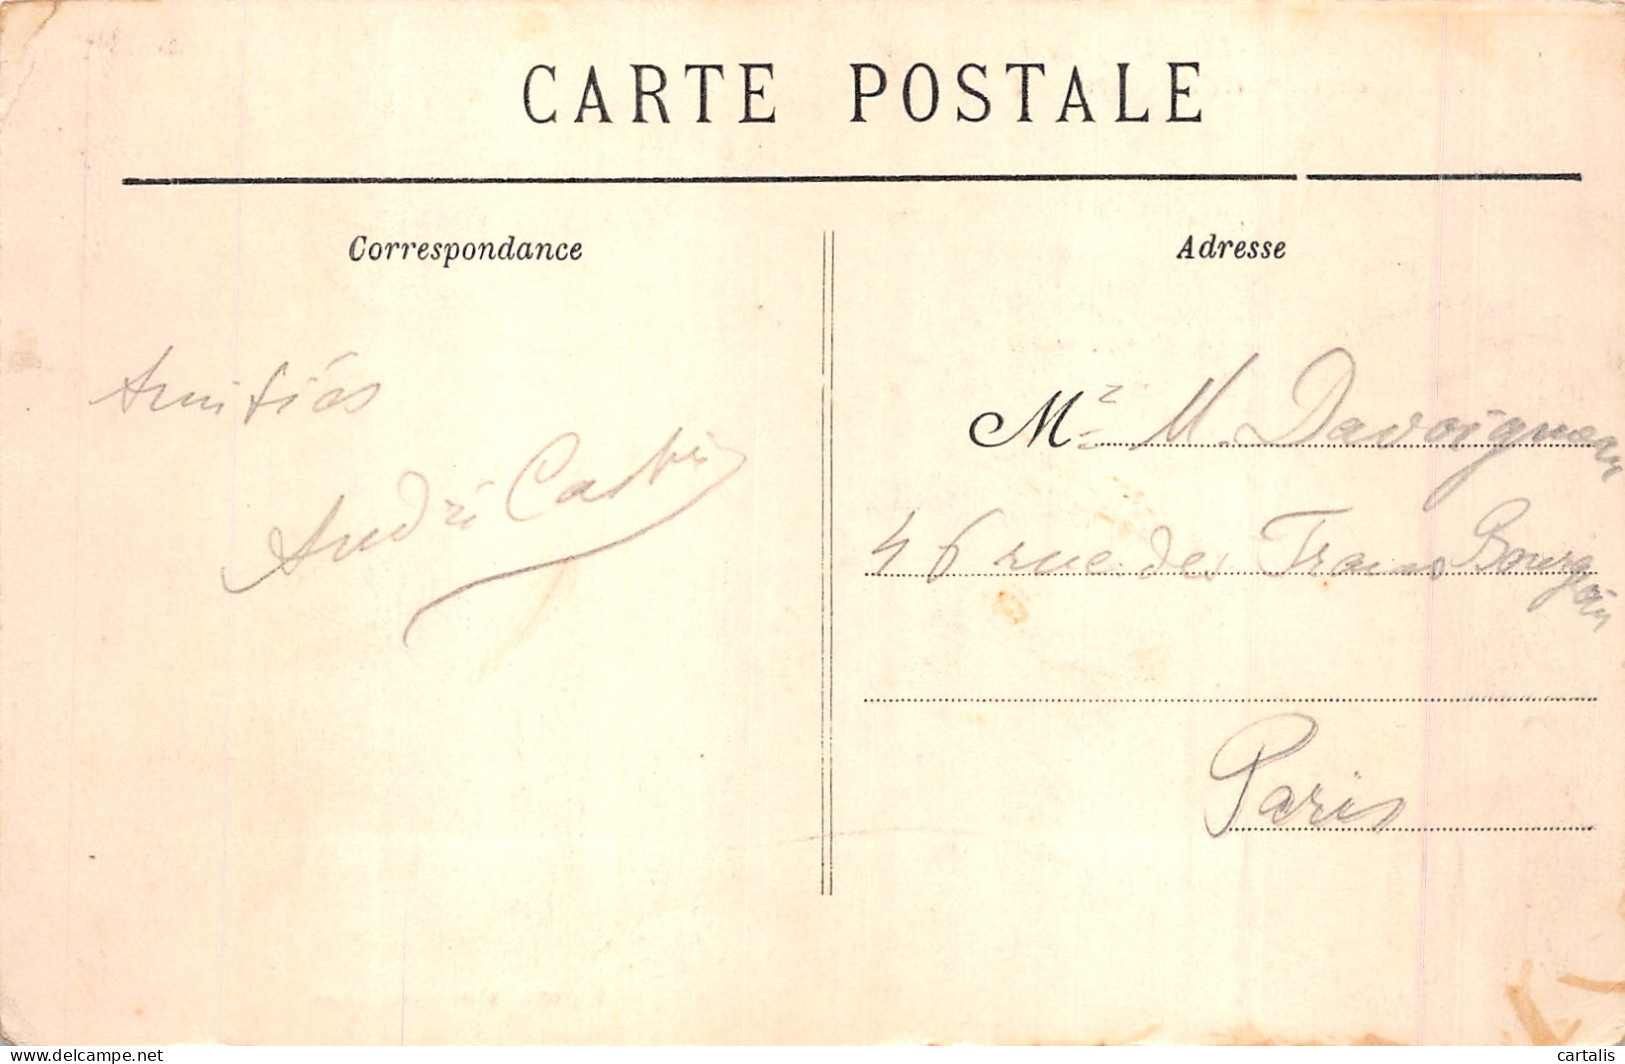 CARTE POSTALE
Correspondance
Amitiés
André
Adresse
Mr M. Davoigneau
46 rue des Francs Bourgeois
Paris
www.delcampe.net
cartalis